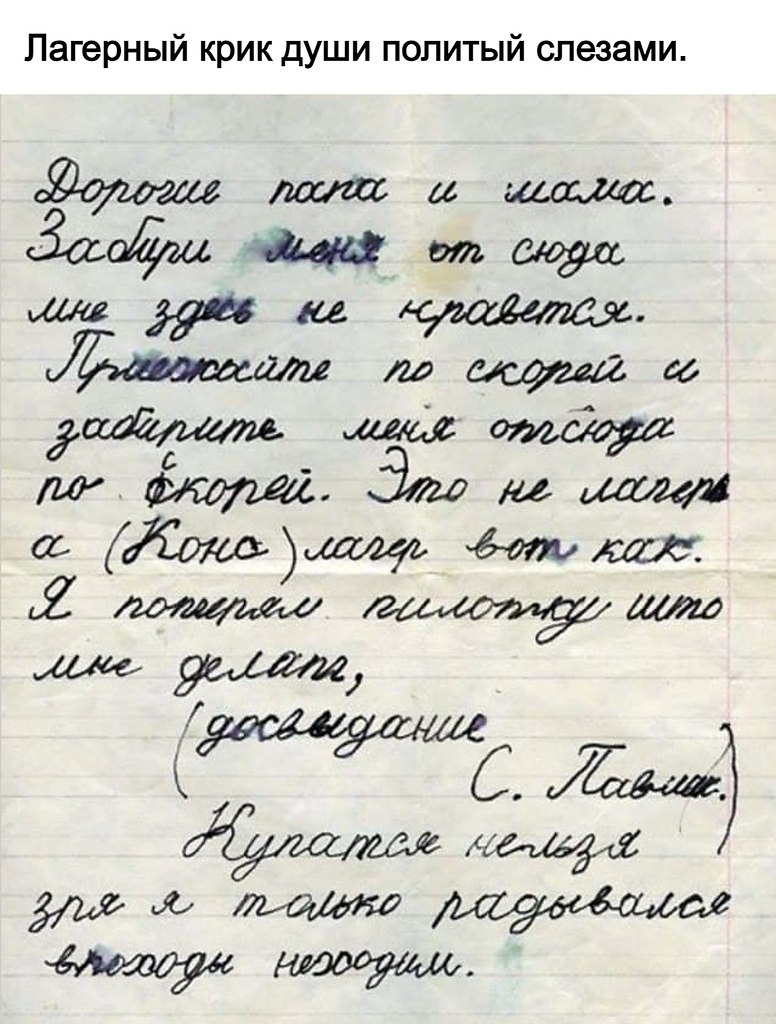 Лагерный крик души политый слезами.
Дорогие папа и мама.
Забири меня от сюда
мне здесь не нравется.
Приезжайте по скорей и
забирите меня отсюда
по скорей. Это не лагерь
а (Конс) лагер вот как.
Я потерял пилотку што
мне делать,
(досвыдание
С. Павлик.)
Купатся нельзя
зря я только радывался
впоходы неходим.